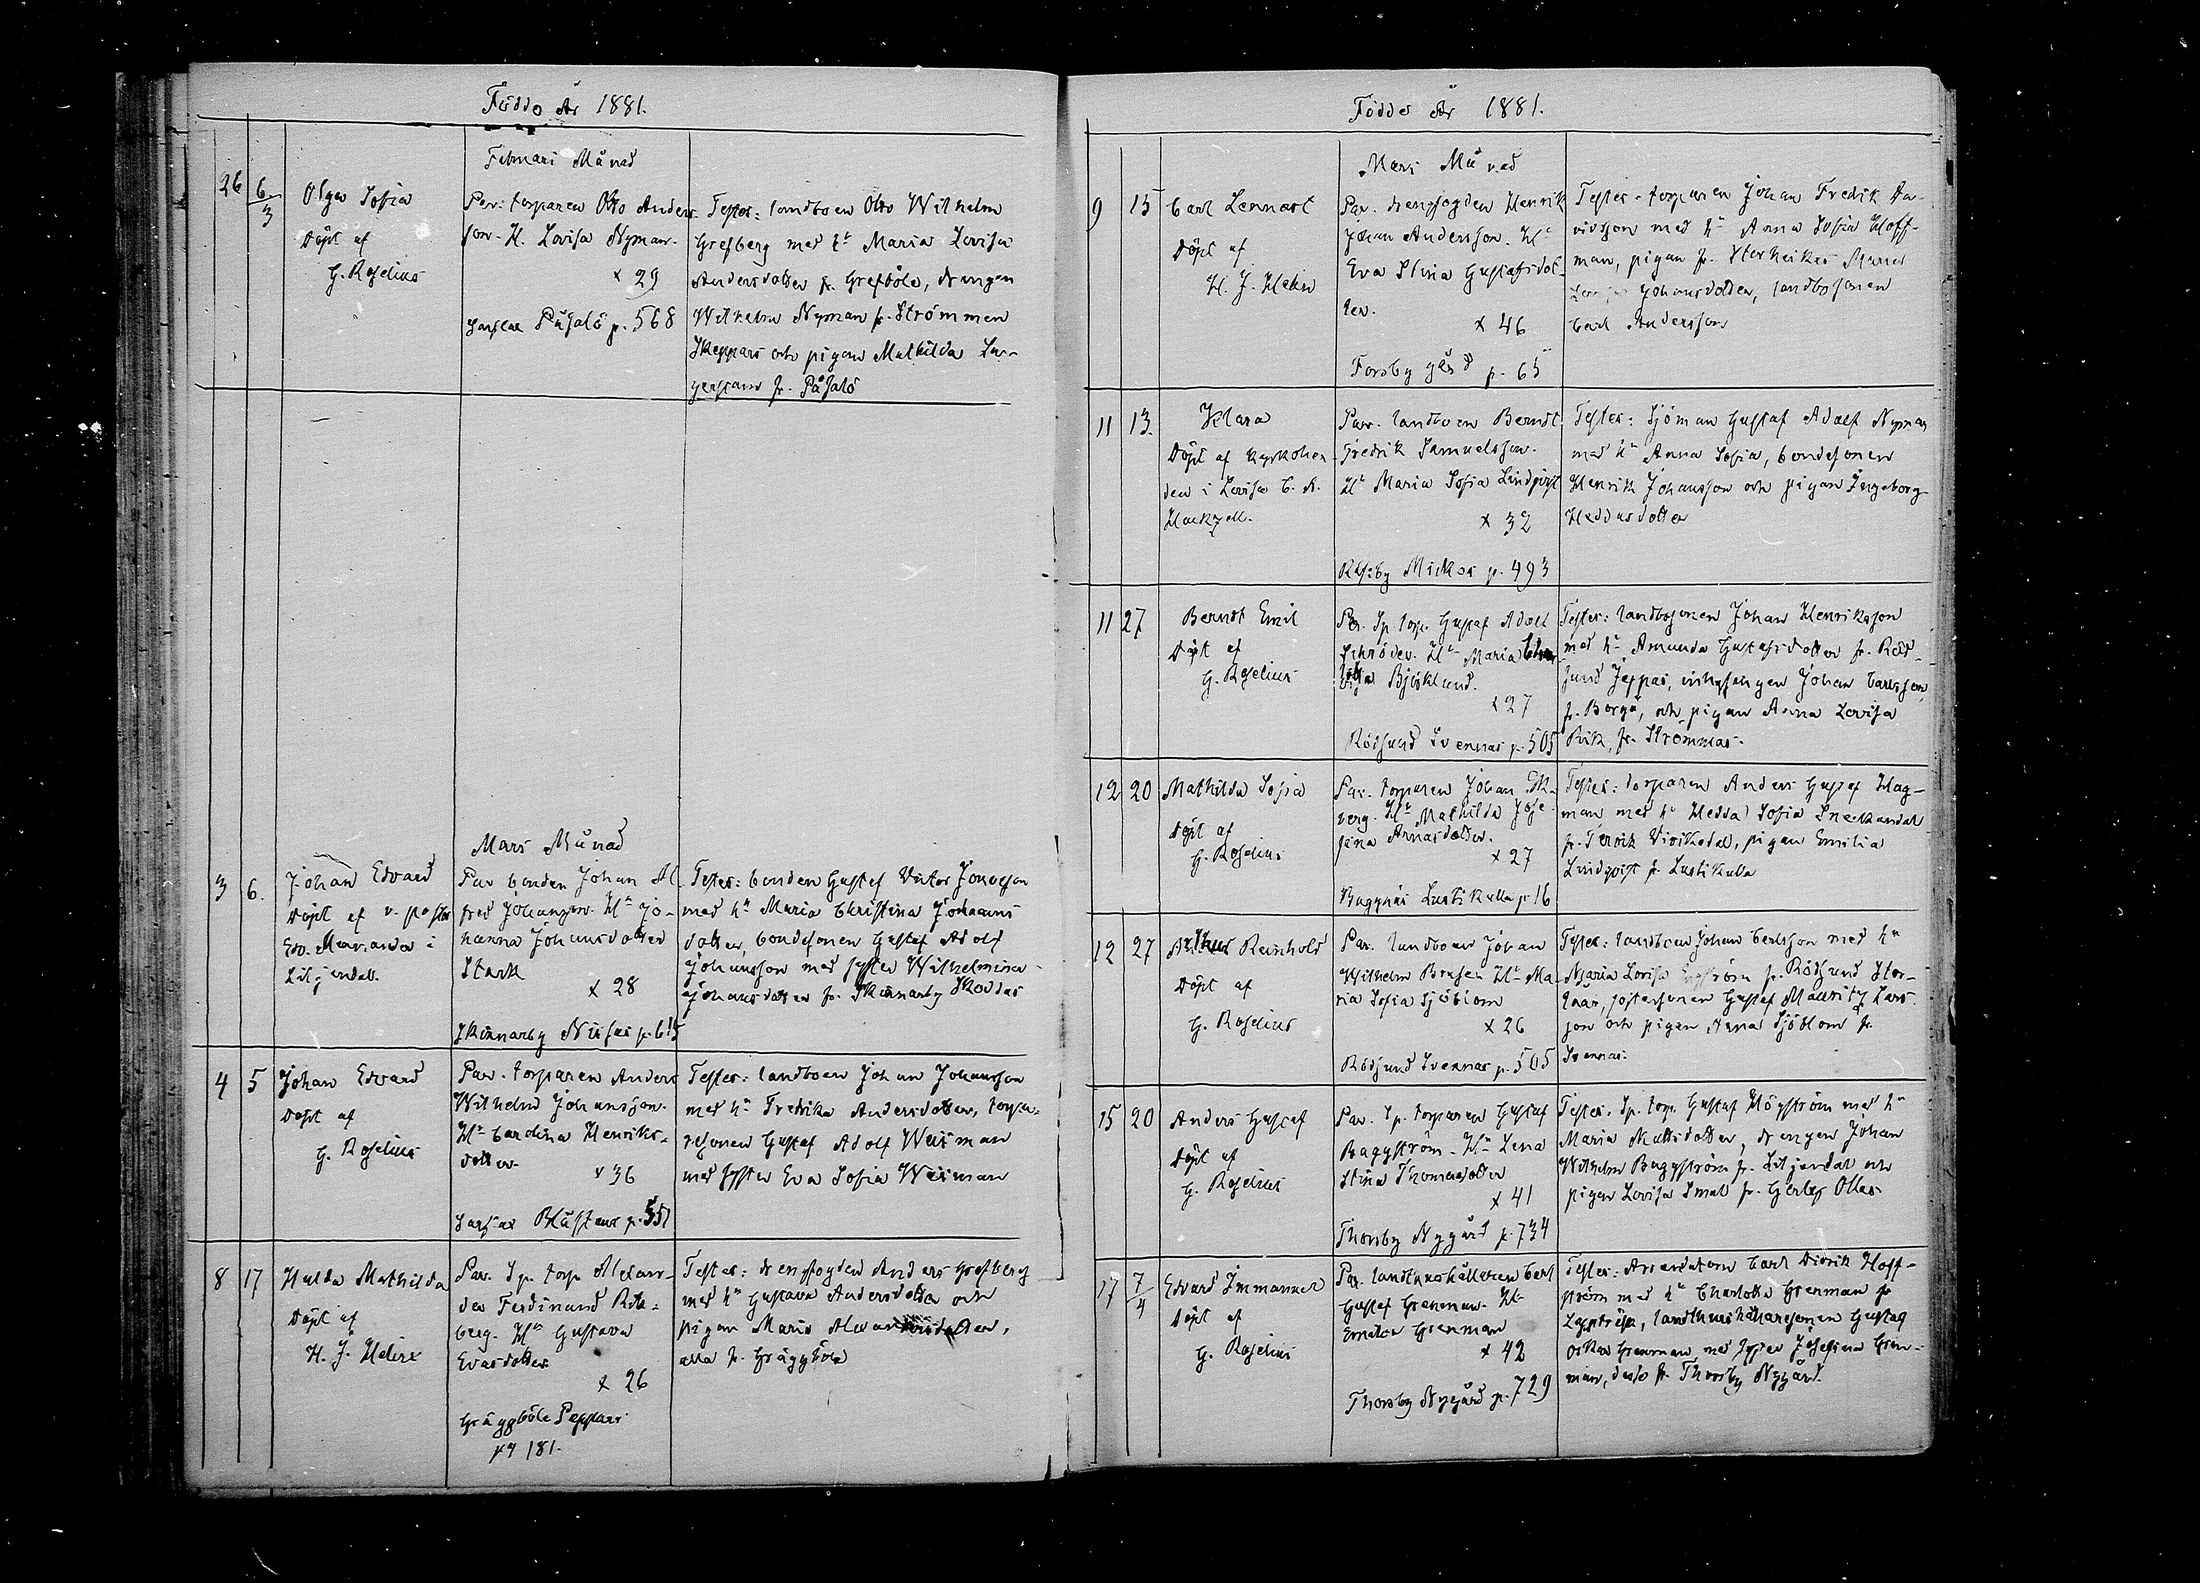 Födde År 1881.
Februari Månad
26 6/3
Olga Sofia
Döpt af
G. Roselius
Par: torparen Otto Anders-
son. H. Lovisa Nyman.
x 29
Påsalö p. 568
Testes: landboen Otto Wilhelm
Grefberg med hu Maria Lovisa
Andersdotter fr. Grefböle, drängen
Wilhelm Nyman fr. Strömmen
Skeppars och pigan Mathilda La-
gerstam fr. Påsalö
Mars Månad
3 6.
Johan Edvard
Döpt af v. pastor
Edv. i
Liljendal.
Par bonden Johan Al-
fred Johansson. Hu Jo-
hanna Johansdotter
Stark
x 28
Skinnarby Nissas p. 615
Testes: bonden Gustaf Victor
med hu Maria Christina Johans
dotter, bondesonen Gustaf Adolf
Johansson med syster Wilhelmina
Johansdotter fr. Skinnarby Skoddas
4 5
Johan Edvard
Döpt af
G. Roselius
Par. torparen Anders
Wilhelm Johansson.
Hu Carolina Henriks-
dotter.
x 36
p. 551
Testes: landboen Johan Johansson
med hu Fredrika Andersdotter, torpa-
resonen Gustaf Adolf Weisman
med syster Eva Sofia Weisman
8 17
Hulda Mathilda
Döpt af
H. J. Helin
Par. Sp. torp Alexan-
der Ferdinand
berg. Hu Gustava
Evasdotter
x 26
Gräggböle Peppars
pg 181.
Testes: drengfogden Anders Grefberg
med hu Gustava Andersdotter och
pigan Maria
alla fr. Gräggböle
Födde År 1881.
Mars Månad
9 15
Carl Lennart
Döpt af
H. J. Helin
Par. drengfogden Henrik
Johan Andersson. Hu
Eva Stina Gustafsdot-
ter.
x 46
Forsby gård p. 65
Testes. torparen Johan Fredrik Da-
vidsson med hu Anna Sofia Hoff-
man, pigan fr. Storheikas Maria
Johansdotter, landbosonen
Carl Andersson
11 13.
Klara
Döpt af kyrkoher-
den i Lovisa C. A.
Hackzell.
Par. landboen Berndt
Fredrik Samuelsson.
Hu Maria Sofia Lindqvist
x 32
Mickos p. 493
Testes: Sjöman Gustaf Adolf Nyman
med hu Anna Sofia, bondesonen
Henrik Johansson och pigan Ingeborg
Heddasdotter
11 27
Berndt Emil
Döpt af
G. Roselius
Par. Sp torp. Gustaf Adolf
Schröder. Hu Maria
Björklund.
x 27
Rödsund Svennas p. 505
Testes: landbosonen Johan Henriksson
med hu Amanda Gustafsdotter fr. Röd-
sund Jeppas, Johan Carlsson
fr. Borgå, och pigan Anna Lovisa
fr. Strömmas.
12 20
Mathilda Sofia
Döpt af
G. Roselius
Par. torparen Johan Ek-
berg. Hu Mathilda Jose-
fina Annasdotter.
x 27
Baggnäs Lustikulla p 16
Testes: torparen Anders Gustaf Hag-
man med hu Hedda Sofia
fr. pigan Emilia
Lindqvist fr. Lustikulla
12 27
Arthur Reinhold
Döpt af
G. Roselius
Par. landboen Johan
Wilhelm Brusen Hu Ma-
ria Sofia Sjöblom
x 26
Rödsund Svennas p. 505
Testes: landboen Johan Carlsson med hu
Maria Lovisa Engström fr. Rödsund Stor-
fostersonen Gustaf Mauritz Lars-
son och pigan Anna Sjöblom fr.
Svennas.
15 20
Anders Gustaf
Döpt af
G. Roselius
Par. Sp. torparen Gustaf
Baggström. Hu Lena
Stina Thomasdotter
x 41
Thorsby Nygård p. 734
Testes. Sp. torp. Gustaf Högström med hu
Maria Mattsdotter, drengen Johan
Wilhelm Baggström fr. Liljendal och
pigan Lovisa Smal fr. Gerby Ollas
17 7/4
Edvard Immanuel
Döpt af
G. Roselius
Par. landthushållaren Carl
Gustaf Grenman. Hu
Grenman
x 42
Thorsby Nygård p. 729
Testes: Arrendatorn Carl Didrik Hoff-
ström med hu Charlotta Grenman fr
landthushållaresonen Gustaf
Oskar Grenman med syster Josefina Gren-
man, fr. Thorsby Nygård.